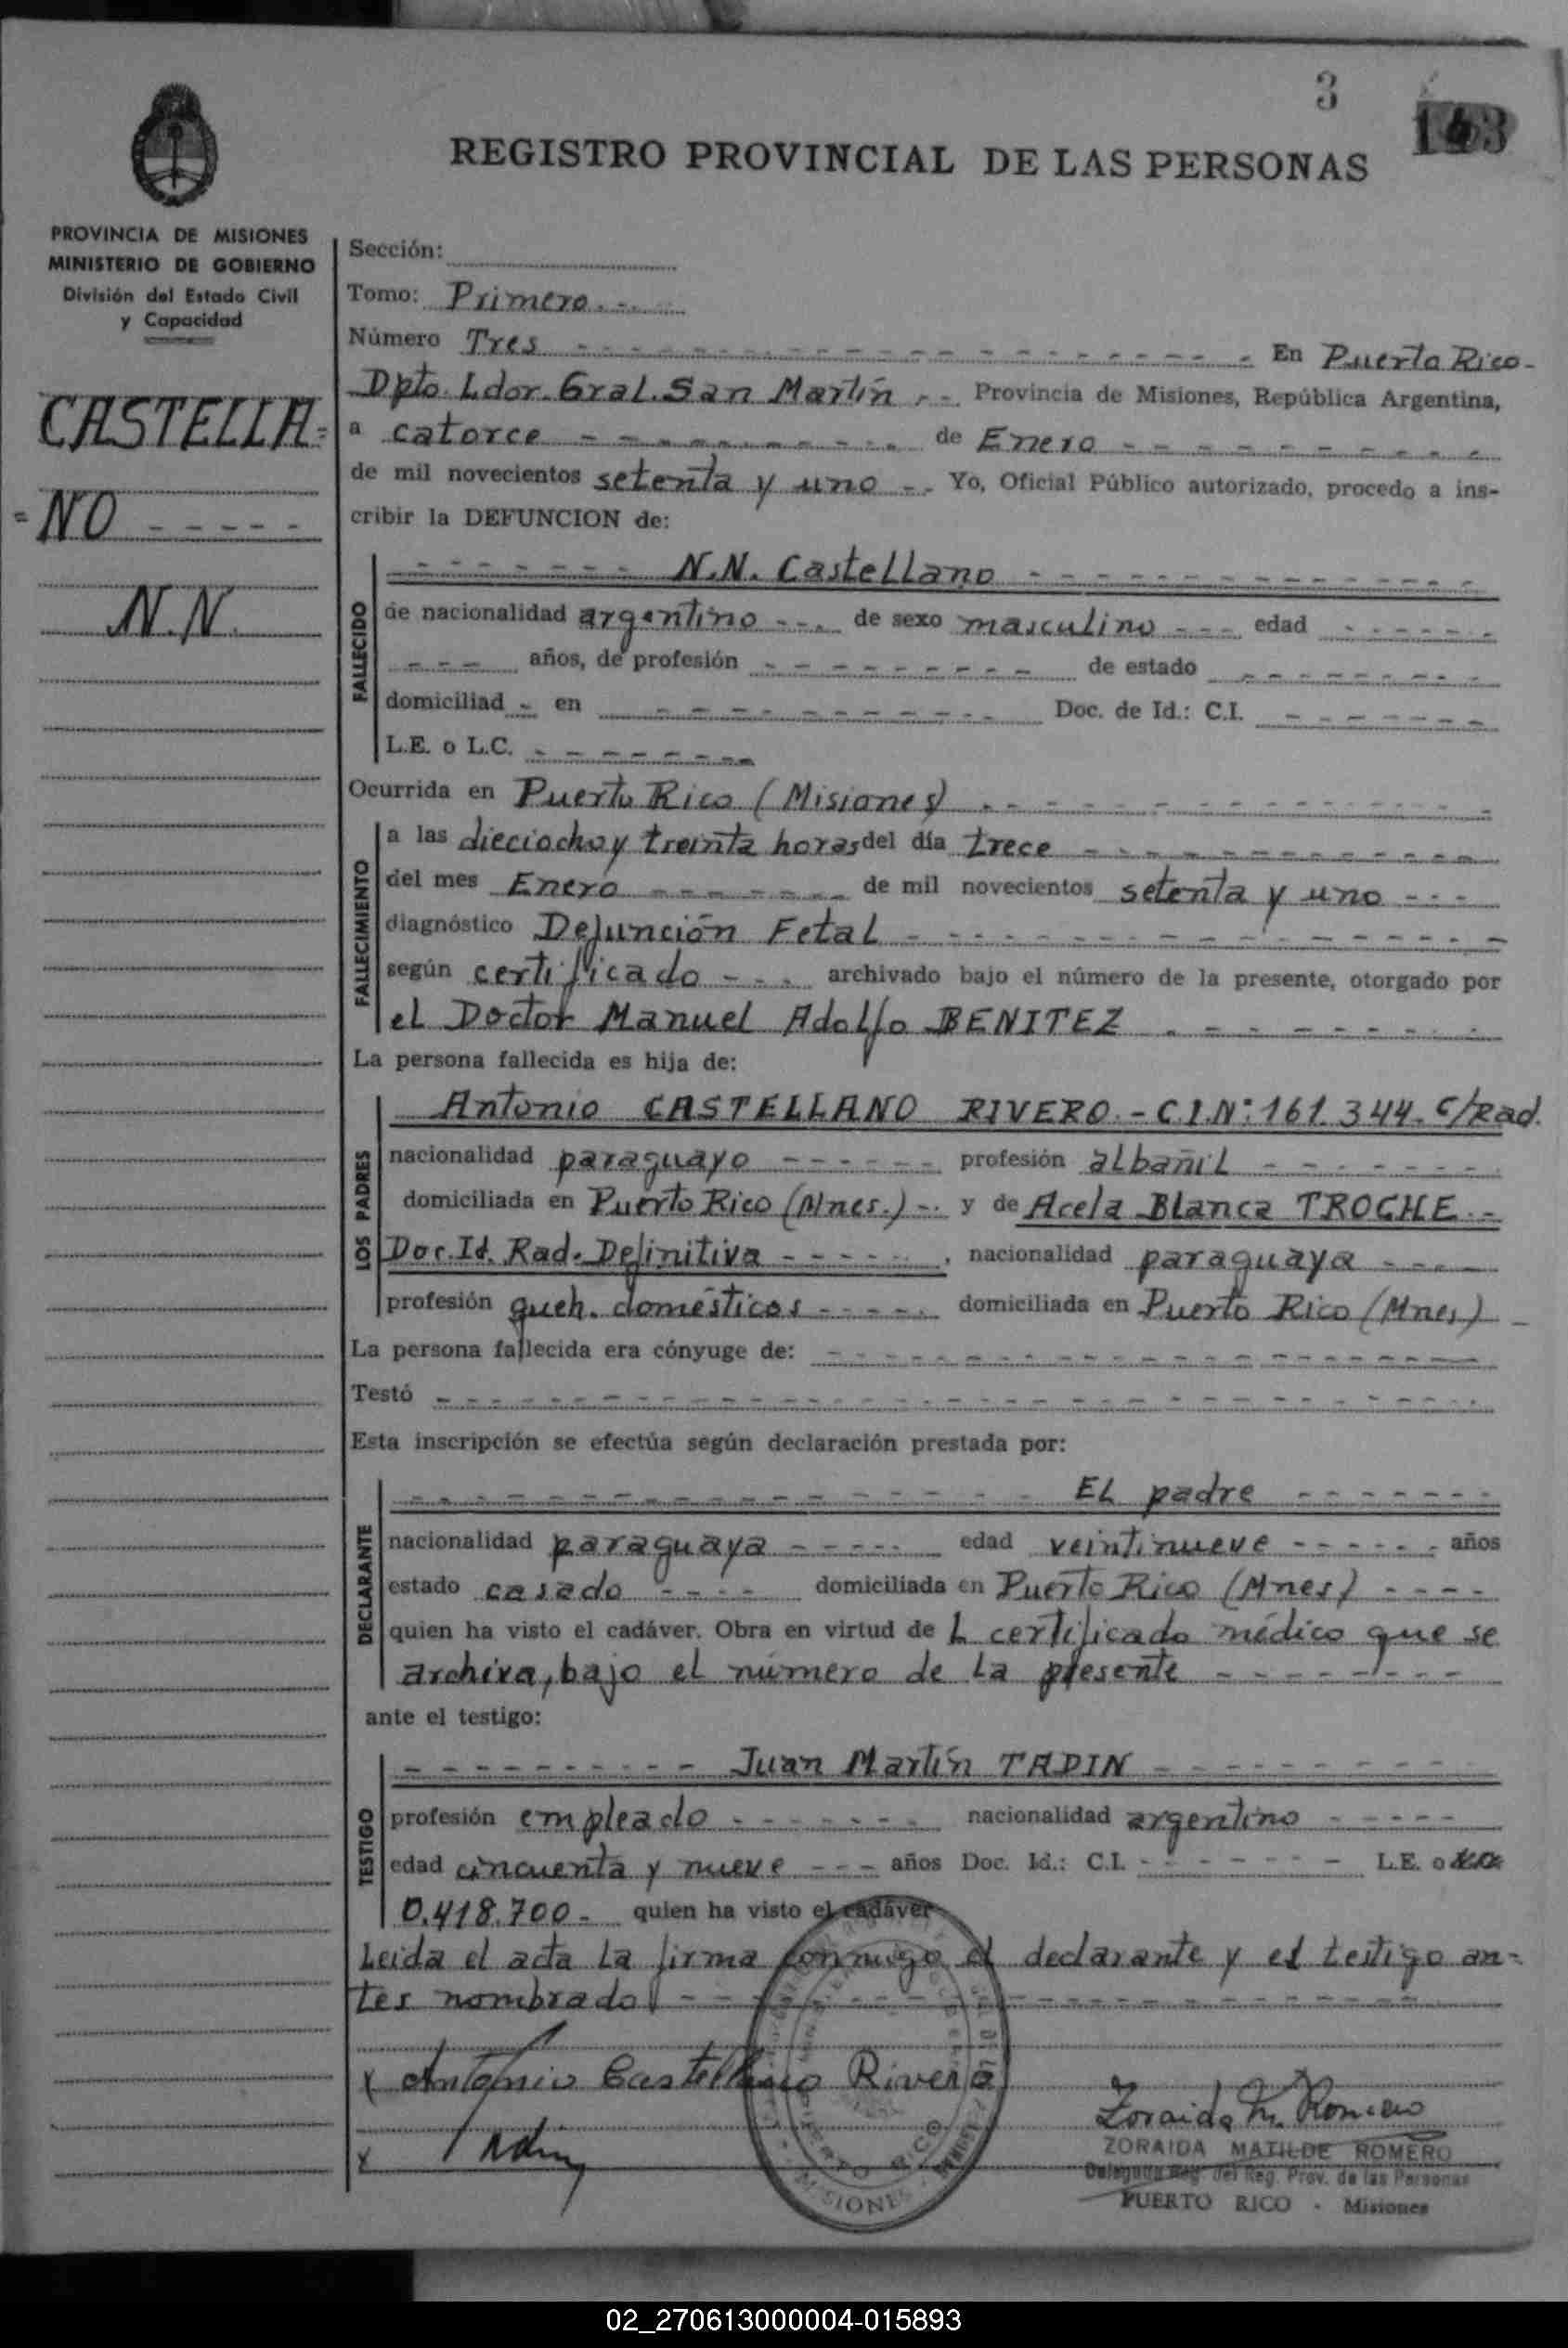 3
143
REGISTRO PROVINCIAL DE LAS PERSONAS
PROVINCIA DE MISIONES
MINISTERIO DE GOBIERNO
División del Estado Civil
y Capacidad
CASTELLA=
=NO - - - - -
N.N.
Sección:
Tomo: Primero.-.
Número Tres - - - En Puerto Rico-
Dpto. Ldor. Gral. San Martín.-- Provincia de Misiones, República Argentina,
a catorce - - - de Enero - - -
de mil novecientos setenta y uno -- Yo, Oficial Público autorizado, procedo a ins-
cribir la DEFUNCION de:
FALLECIDO
- - - N.N. Castellano - - -
de nacionalidad argentino --- de sexo masculino --- edad - - -
- - - años, de profesión - - - de estado - - -
domiciliad - en - - - Doc. de Id.: C.I. - - -
L.E. o L.C. - - -
Ocurrida en Puerto Rico (Misiones) - - -
FALLECIMIENTO
a las dieciocho y treinta horas del día trece - - -
del mes Enero - - - de mil novecientos setenta y uno - - -
diagnóstico Defunción Fetal - - -
según certificado - - - archivado bajo el número de la presente, otorgado por
el Doctor Manuel Adolfo BENITEZ - - -
La persona fallecida es hija de:
LOS PADRES
Antonio CASTELLANO RIVERO.- C.I.N°: 161.344. c/Rad.
nacionalidad paraguayo - - - profesión albañil - - -
domiciliada en Puerto Rico (Mnes.) -. y de Acela Blanca TROCHE.-
Doc. Id. Rad. Definitiva - - - , nacionalidad paraguaya - - -
profesión queh. domésticos - - - domiciliada en Puerto Rico (Mnes) -
La persona fallecida era cónyuge de: - - -
Testó - - -
Esta inscripción se efectúa según declaración prestada por:
DECLARANTE
- - - EL padre - - -
nacionalidad paraguaya - - - edad veintinueve - - - años
estado casado - - - domiciliada en Puerto Rico (Mnes) - - -
quien ha visto el cadáver. Obra en virtud de L certificado médico que se
archiva, bajo el número de la presente - - -
ante el testigo:
TESTIGO
- - - Juan Martín TADIN - - -
profesión empleado - - - nacionalidad argentino - - -
edad cincuenta y nueve - - - años Doc. Id.: C.I. - - - L.E. o
0.418.700- quien ha visto el cadáver
Leida el acta la firma conmigo el declarante y el testigo an-
tes nombrado - - -
x Antonio Castellano Rivero
x Tadin
Zoraida M. Romero
ZORAIDA MATILDE ROMERO
Delegada Reg. del Reg. Prov. de las Personas
PUERTO RICO - Misiones
PUERTO RICO
MISIONES
02_270613000004-015893